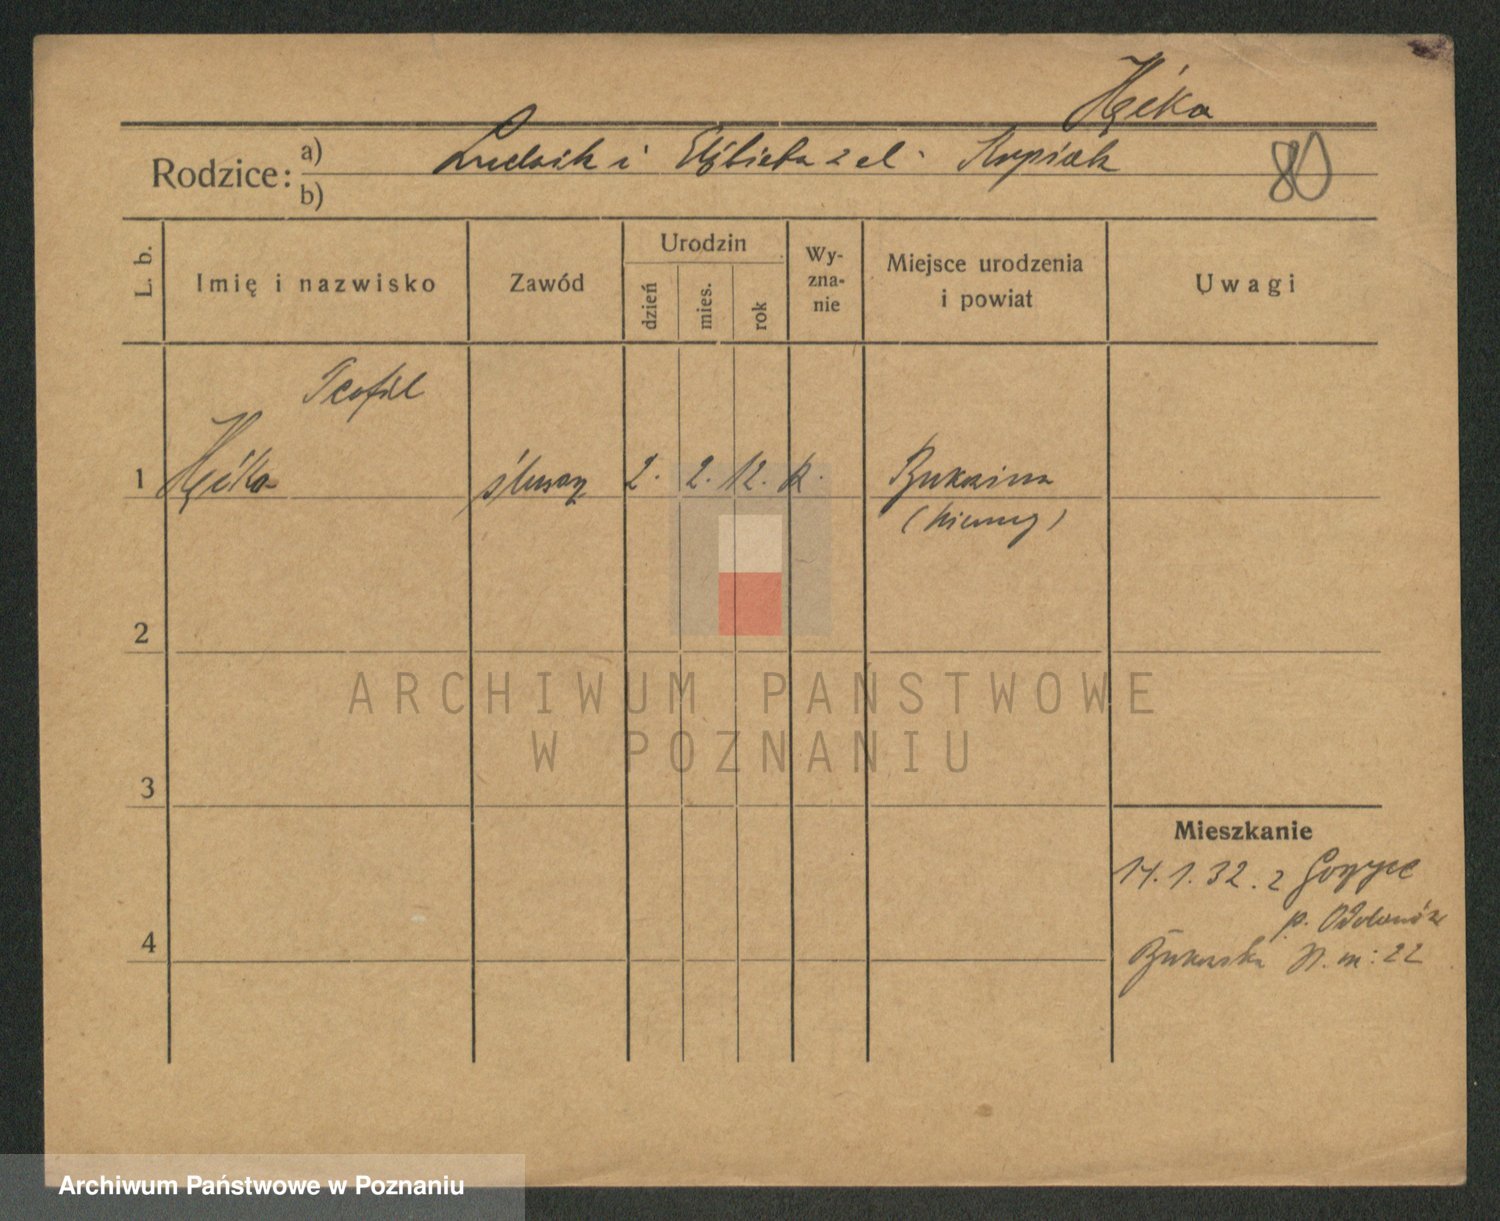 Hęćka
Rodzice: a) Ludwik i Elżbieta z d. Kupiak
b)
80
L. b.
Imię i nazwisko
Zawód
Urodzin
dzień
mies.
rok
Wy-
zna-
nie
Miejsce urodzenia
i powiat
Uwagi
Teofil
1 Hęćka ślusarz 2. 2. 12. k. Bukowina
(Niemcy)
2
3
4
Mieszkanie
14.1.32. z Gorzyce
p. Odolanów
Bukowska m: 22
ARCHIWUM PAŃSTWOWE
W POZNANIU
Archiwum Państwowe w Poznaniu